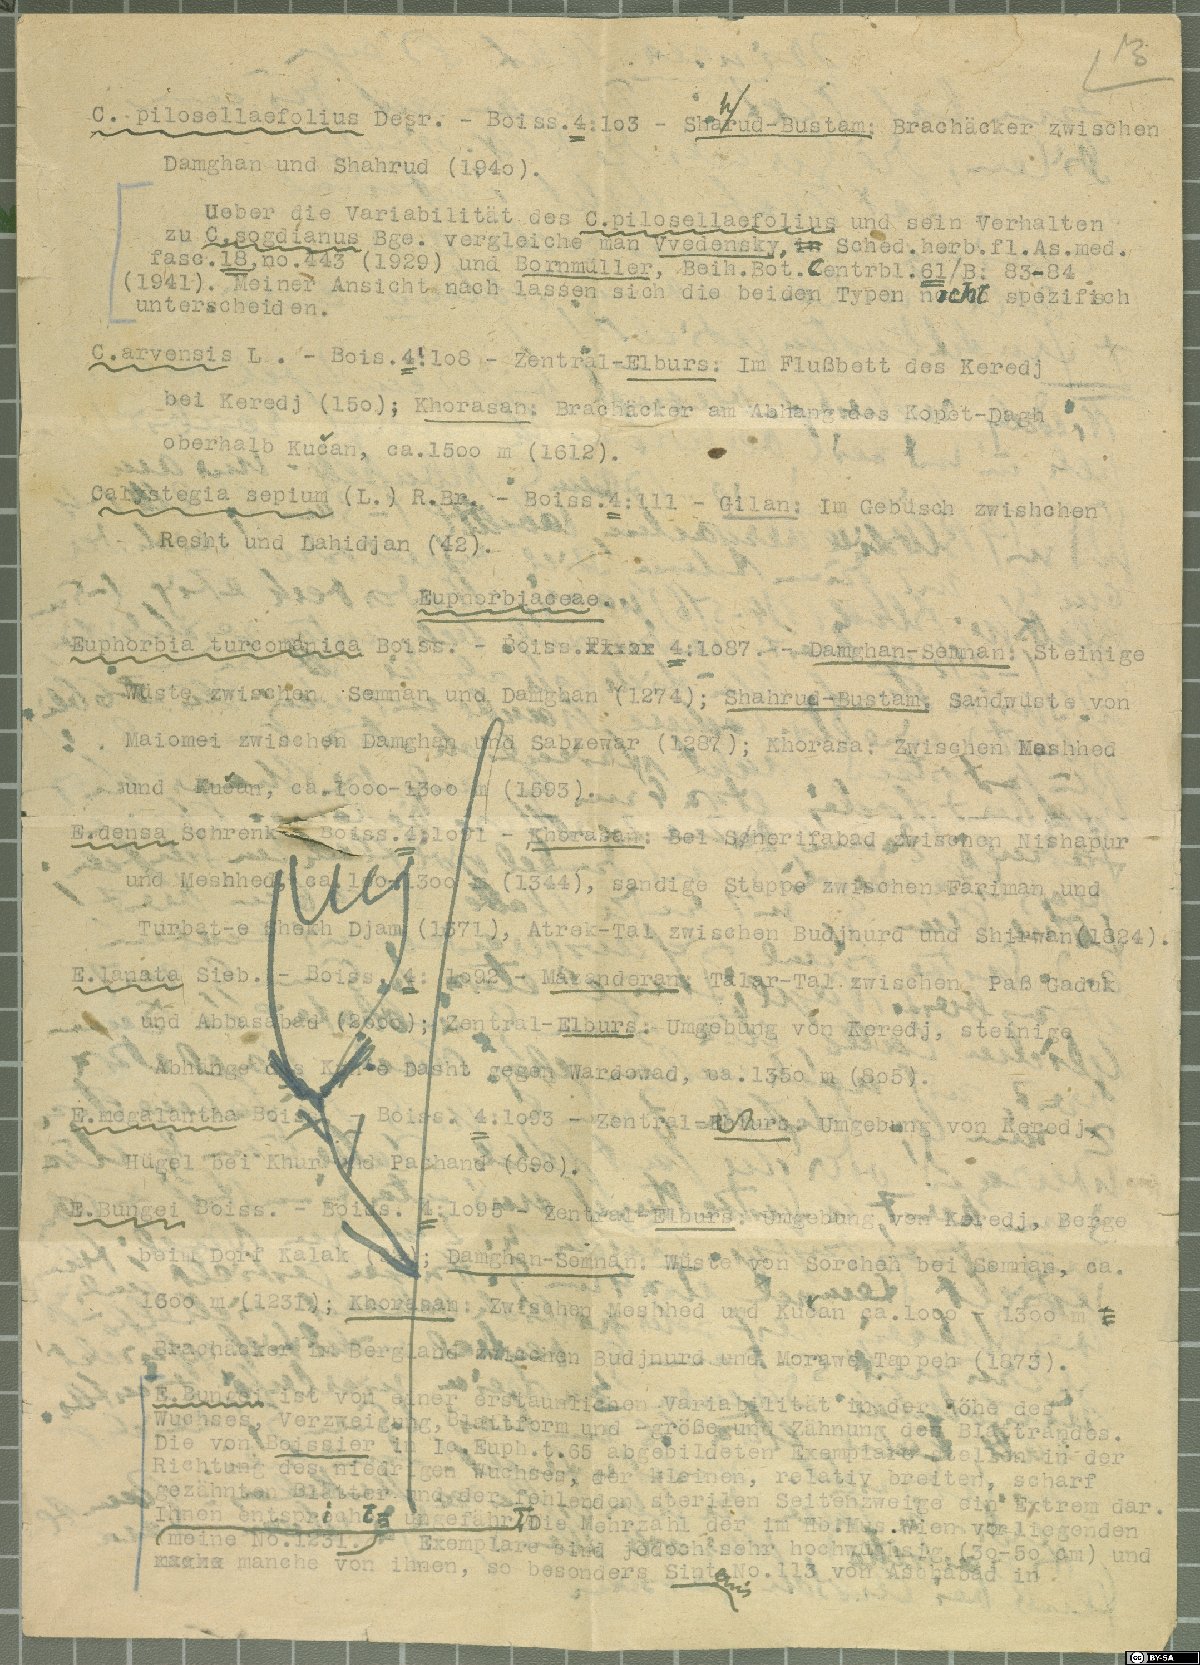 13
C. pilosellaefolius Desr. - Boiss.4:1o3 - Shahrud-Bustam: Brachäcker zwischen
Damghan und Shahrud (194o).
Ueber die Variabilität des C.pilosellaefolius und sein Verhalten
zu C.sogdianus Bge. vergleiche man Vvedensky, in Sched.herb.fl.As.med.
fasc.18,no.443 (1929) und Bornmüller, Beih.Bot.Centrbl.61/B: 83-84
(1941). Meiner Ansicht nach lassen sich die beiden Typen nicht spezifisch
unterscheiden.
C.arvensis L . - Bois.4:1o8 - Zentral-Elburs: Im Flußbett des Keredj
bei Keredj (15o); Khorasan: Brachäcker am Abhang des Kopet-Dagh
oberhalb Kučan, ca.15oo m (1612).
Calystegia sepium (L.) R.Br. - Boiss.4:111 - Gilan: Im Gebüsch zwishchen
Resht und Lahidjan (42).
Euphorbiaceae.
Euphorbia turcomanica Boiss. - Boiss. 4:1o87. - Damghan-Semnan: Steinige
Wüste zwischen Semnan und Damghan (1274); Shahrud-Bustam: Sandwüste von
Maiomei zwischen Damghan und Sabzewar (1287); Khorasa: Zwischen Meshhed
und Kučan, ca.1ooo-13oo m (1593).
E.densa Schrenk - Boiss.4:1o91 - Khorasan: Bei Scherifabad zwischen Nishapur
und Meshhed, ca. 13oo m (1344), sandige Steppe zwischen Fariman und
Turbat-e Shekh Djam (1371), Atrek-Tal zwischen Budjnurd und Shirwan(1824).
E.lanata Sieb. - Boiss. 4: 1o92 - Mazanderan: Talar-Tal zwischen Paß Gaduk
und Abbasabad; Zentral-Elburs: Umgebung von Keredj, steinige
Abhänge des Kuh-e Dasht gegen Wardowad, ca.135o m (8o5).
E.megalantha Boiss. - Boiss. 4:1o93 - Zentral-Elburs: Umgebung von Keredj,
Hügel bei Khur und Pachand (69o).
E.Bungei Boiss. - Boiss. 4:1o95 - Zentral-Elburs: Umgebung von Keredj, Berge
beim Dorf Kalak; Damghan-Semnan: Wüste von Sorcheh bei Semnan, ca.
16oo m (1231); Khorasan: Zwischen Meshhed und Kučan ca.1ooo - 13oo m
Brachäcker im Bergland zwischen Budjnurd und Morawe Tappeh (1873).
E.Bungei ist von einer erstaunlichen Variabilität in der Höhe des
Wuchses, Verzweigung,Blattform und -größe und Zähnung des Blattrandes.
Die von Boissier in Ic.Euph.t.65 abgebildeten Exemplare stellen in der
Richtung des niedrigen Wuchses, der kleinen, relativ breiten, scharf
gezähnten Blätter und der fehlenden sterilen Seitenzweige ein Extrem dar.
Ihnen entspricht ungefähr Die Mehrzahl der im Hb.Mus.Wien vorliegenden
(meine No.1231.) Exemplare sind jedoch sehr hochwüchsig (3o-5o cm) und
manche von ihnen, so besonders Sintenis No.113 von Aschabad in
CC BY-SA